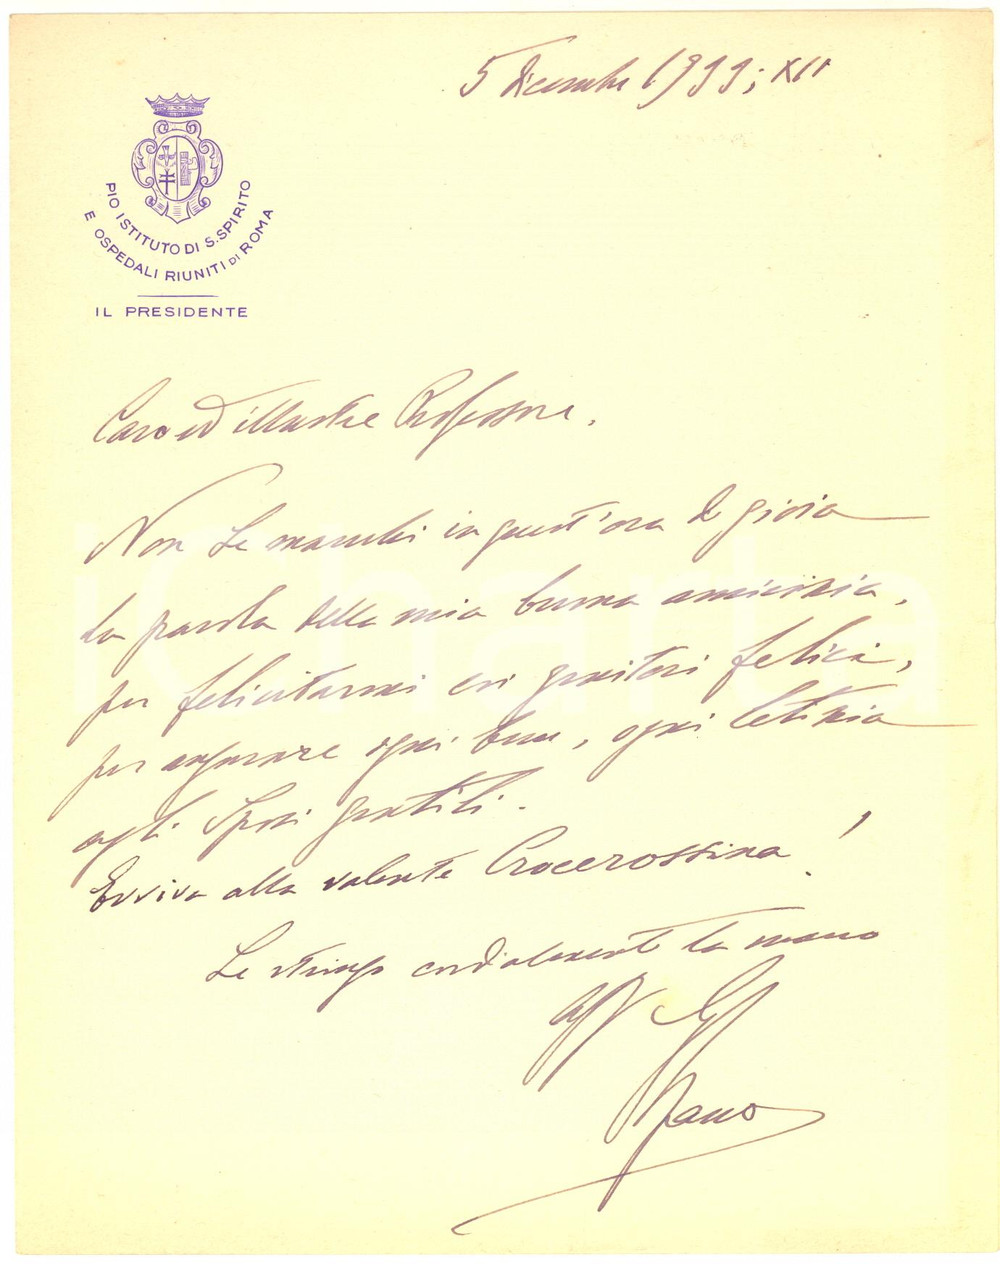 5 dicembre 1933; XII
PIO ISTITUTO DI S. SPIRITO
E OSPEDALI RIUNITI DI ROMA
IL PRESIDENTE
Caro ed illustre Professore,
Non Le manchi in quest'ora di gioia
la parola della mia buona amicizia,
per felicitarmi coi genitori felici,
per augurare ogni bene, ogni letizia
agli Sposi gentili.
Evviva alla valente Crocerossina!
Le stringo cordialmente la mano
iCharta